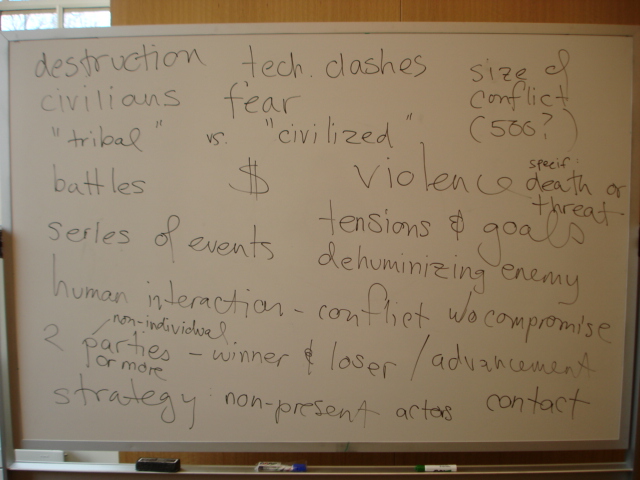 destruction tech. clashes size of
civilians fear conflict
"tribal" vs. "civilized" (500?)
battles $ violence specif: death or
threat
series of events tensions & goals
dehuminizing enemy
human interaction - conflict w/o compromise
non-individual
2 parties - winner & loser / advancement
or more
strategy non-present actors contact